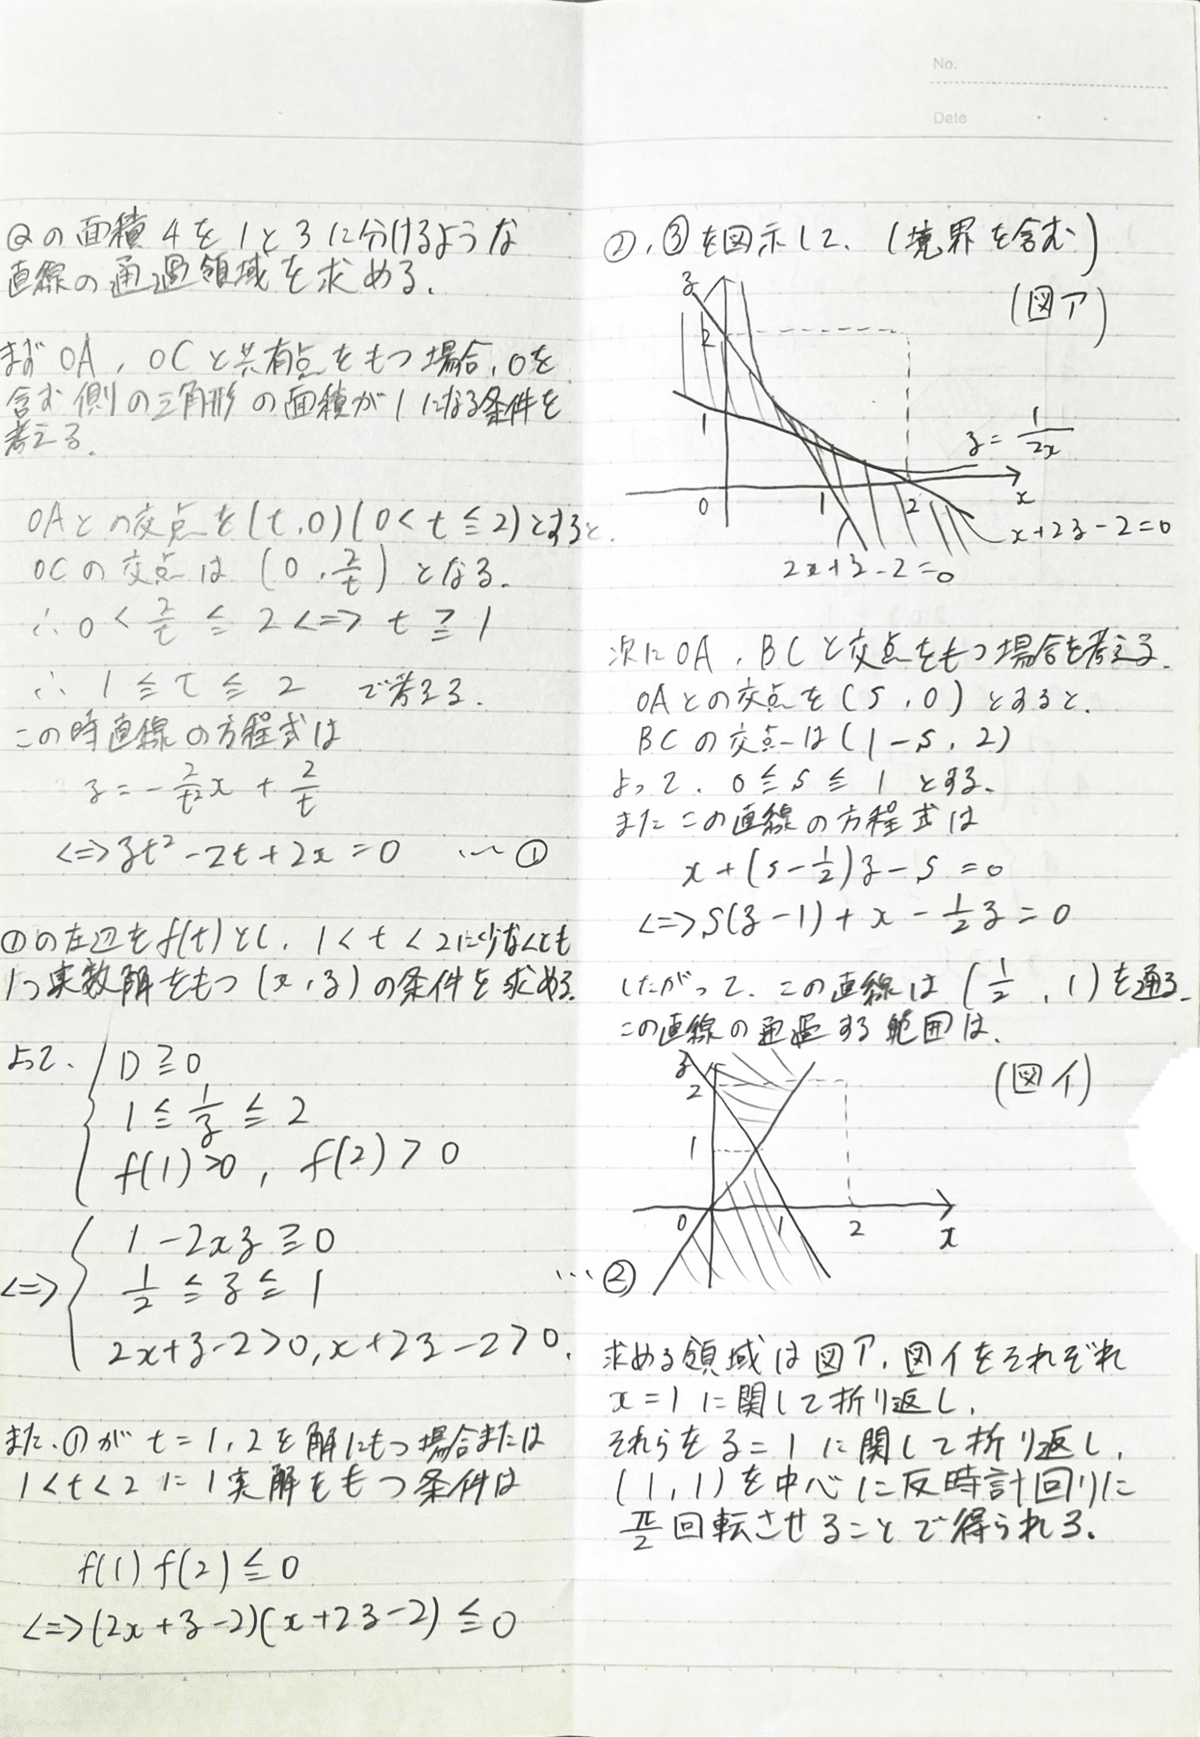 Qの面積4を1と3に分けるような
直線の通過領域を求める.
まず OA, OCと共有点をもつ場合, Oを
含む側の三角形の面積が1になる条件を
考える.
OAとの交点を(t,0)(0<t≦2)とすると.
OCの交点は (0, 2/t) となる.
∴ 0 < 2/t ≦ 2 <=> t ≧ 1
∴ 1 ≦ t ≦ 2 で考える.
この時直線の方程式は
z = -2/t² x + 2/t
<=> zt² - 2t + 2x = 0 … ①
①の左辺をf(t)とし, 1<t<2に少なくとも
1つ実数解をもつ (x,z) の条件を求める.
よって, D ≧ 0
1 ≦ 1/z ≦ 2
f(1)>0, f(2)>0
<=> 1 - 2xz ≧ 0
1/2 ≦ z ≦ 1
2x+z-2>0, x+2z-2>0.
…②
また, ①が t=1,2を解にもつ場合または
1<t<2に1実解をもつ条件は
f(1)f(2) ≦ 0
<=> (2x+z-2)(x+2z-2) ≦ 0
No.
Date
②,③を図示して, (境界を含む)
(図ア)
z
2
1
0
1
2
x
z = 1/2x
x+2z-2=0
2x+z-2=0
次にOA, BCと交点をもつ場合を考える.
OAとの交点を(s,0)とすると,
BCの交点は(1-s, 2)
よって, 0≦s≦1 とする.
またこの直線の方程式は
x+(s-1/2)z-s=0
<=> s(z-1)+x-1/2z=0
したがって, この直線は (1/2, 1)を通る.
この直線の通過する範囲は,
(図イ)
z
2
1
0
1
2
x
求める領域は図ア, 図イをそれぞれ
x=1に関して折り返し,
それらをz=1に関して折り返し,
(1,1)を中心に反時計回りに
π/2回転させることで得られる.